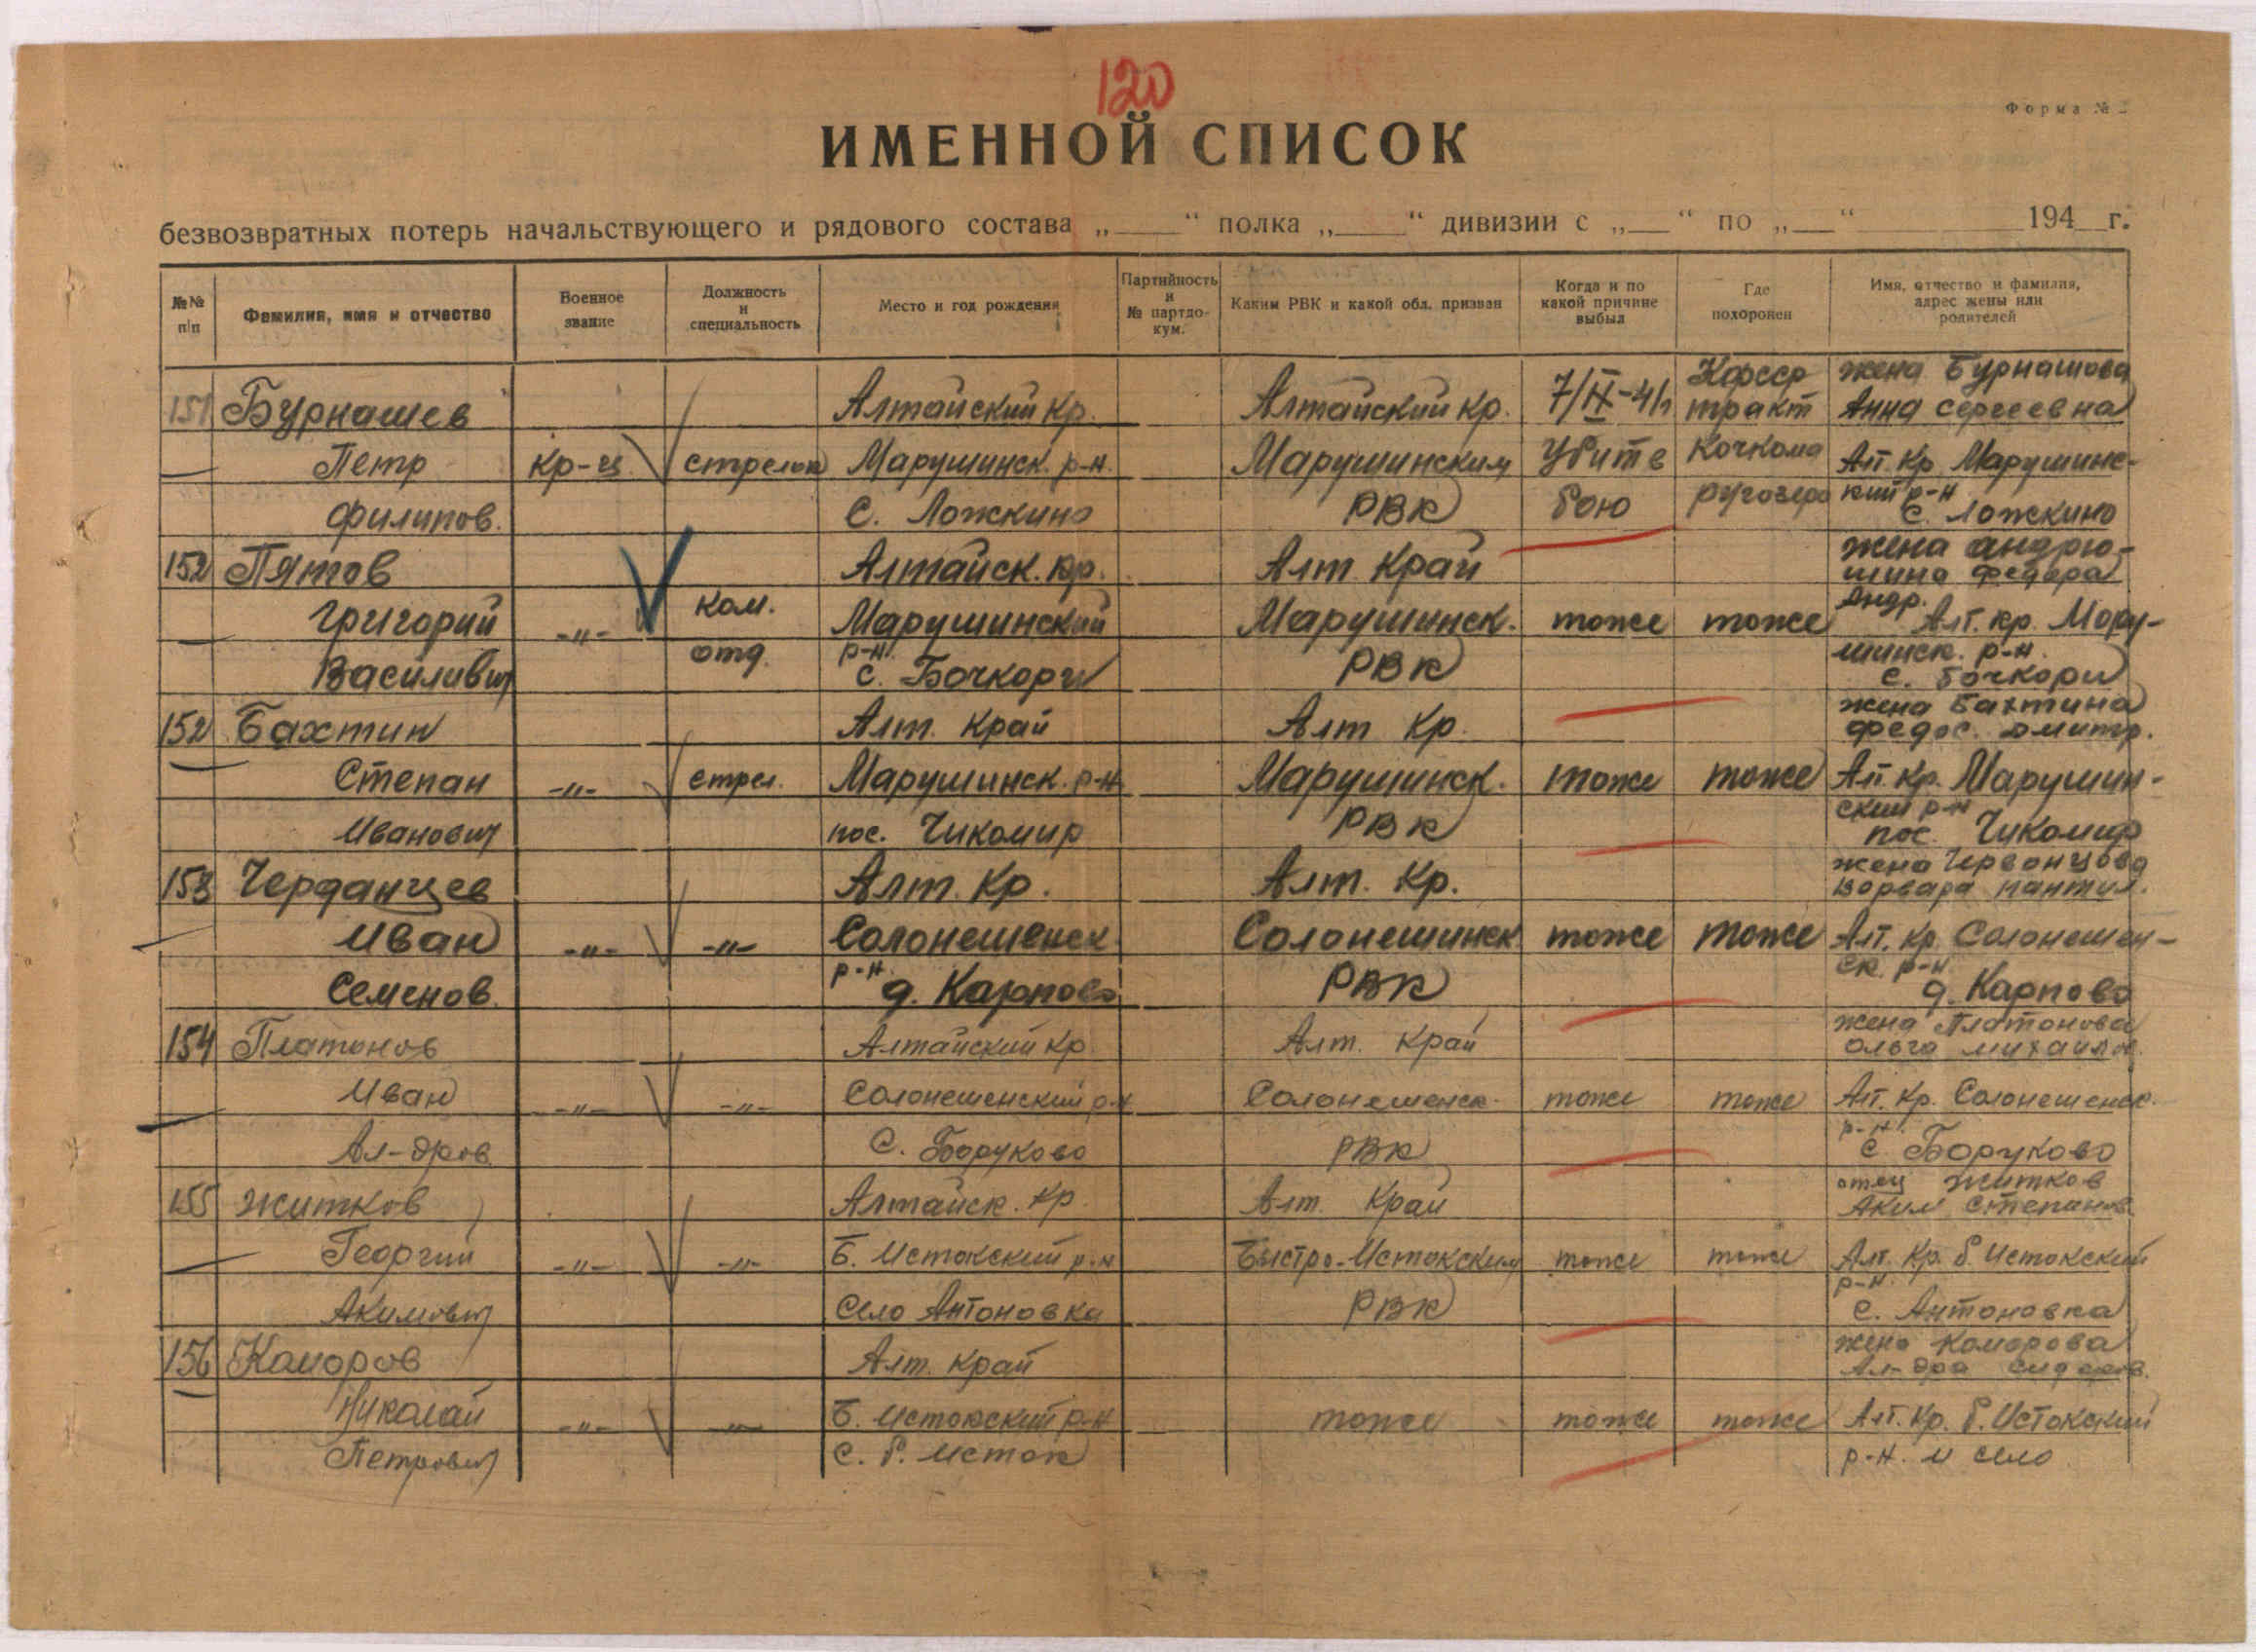 120
Форма №
ИМЕННОЙ СПИСОК
безвозвратных потерь начальствующего и рядового состава „____“ полка „____“ дивизии с „__“ по „__“ ________ 194__г.
№№ п/п
Фамилия, имя и отчество
Военное звание
Должность и специальность
Место и год рождения
Партийность и № партдокум.
Каким РВК и какой обл. призван
Когда и по какой причине выбыл
Где похоронен
Имя, отчество и фамилия, адрес жены или родителей
151 Бурнашев Алтайский кр. Алтайский кр. 7/IX-41г Кфсср тракт жена Бурнашова Анна Сергеевна
Петр кр-ц стрелок Марушинск. р-н. Марушинским Убит в Кочкома Алт. кр. Марушинс-
Филипов. с. Ложкино РВК бою ругозеро кий р-н с. Ложкино
152 Пятов Алтайск. кр. Алт. Край жена Андрю-
шина Федора
Григорий -"- ком. Марушинский Марушинск. тоже тоже Андр. Алт. кр. Мору-
Василивич отд. р-н с. Бочкори РВК шинск. р-н. с. Бочкори
152 Бахтин Алт. Край Алт Кр. жена Бахтина
Федос. Дмитр.
Степан -"- стрел. Марушинск. р-н Марушинск. тоже тоже Алт. Кр. Марушин-
Иванович пос. Чикомир РВК ский р-н пос. Чикомир
153 Черданцев Алт. Кр. Алт. Кр. жена Червонцова
Ворвара Пантил.
Иван -"- -"- Солонешенск Солонешинск тоже тоже Алт. Кр. Солонешен-
Семенов. р-н. д. Карпово РВК ск. р-н д. Карпово
154 Платонов Алтайский кр. Алт. Край жена Платонова
Ольга Михайлов.
Иван -"- -"- Солонешенский р-н Солонешенск. тоже тоже Алт. Кр. Солонешенск.
Ал-дров. с. Боруково РВК р-н. с Боруково
155 Житков Алтайск. кр. Алт. Край отец Житков
Аким Степанов.
Георгий -"- -"- Б. Истокский р-н Быстро-Истокским тоже тоже Алт. Кр. Б. Истокский
Акимович Село Антоновка РВК р-н. с. Антоновка
156 Коморов Алт. Край жена Коморова
Ал-дра Сидоров.
Николай -"- -"- Б. Истокский р-н тоже тоже тоже Алт. Кр. Б. Истокский
Петрович с. Б. Исток р-н. и село